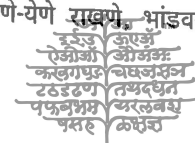 णे-येणे राखणे, भांडव
इईउ ऊएऍ
ऐओऑ औअंअः
कखगघङ चछजझञ
टठडढण तथदधन
पफबभम यरलवश
षसह ळक्षज्ञ